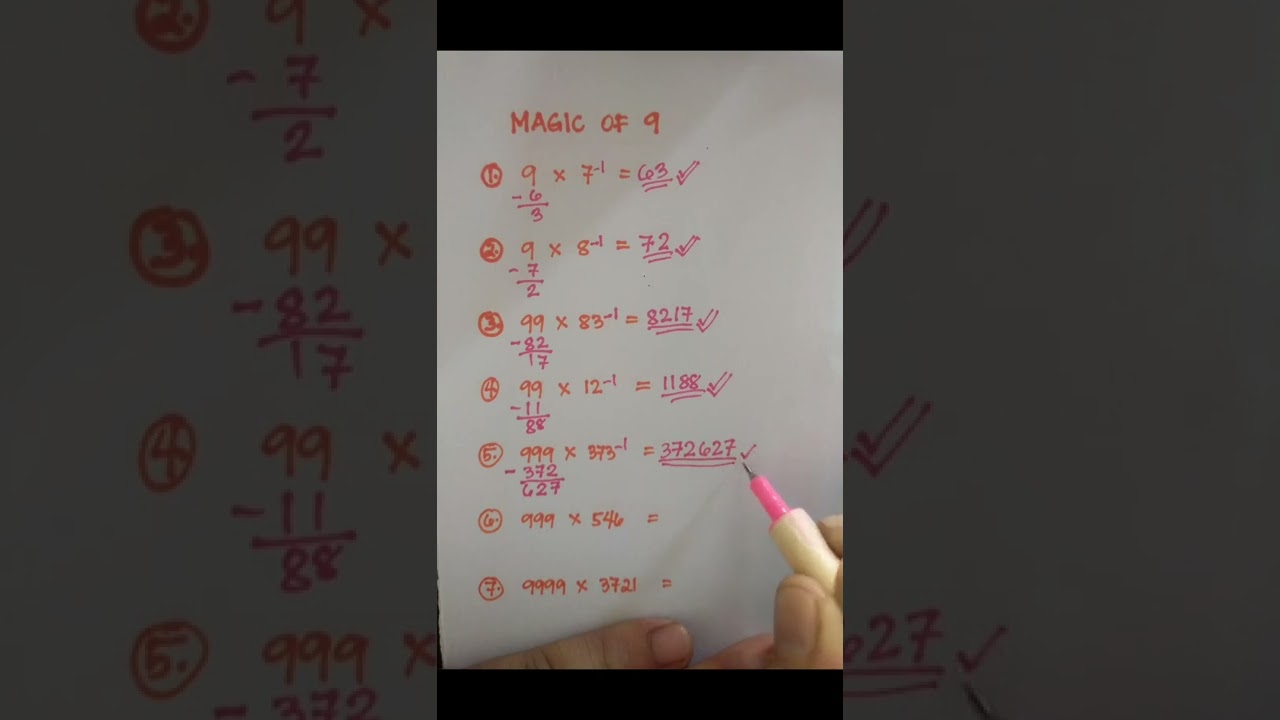 MAGIC OF 9
1. 9 × 7⁻¹ = 63 ✓
- 6
3
2. 9 × 8⁻¹ = 72 ✓
- 7
2
3. 99 × 83⁻¹ = 8217 ✓
- 82
17
4 99 × 12⁻¹ = 1188 ✓
- 11
88
5. 999 × 373⁻¹ = 372627 ✓
- 372
627
6. 999 × 546 =
7. 9999 × 3721 =